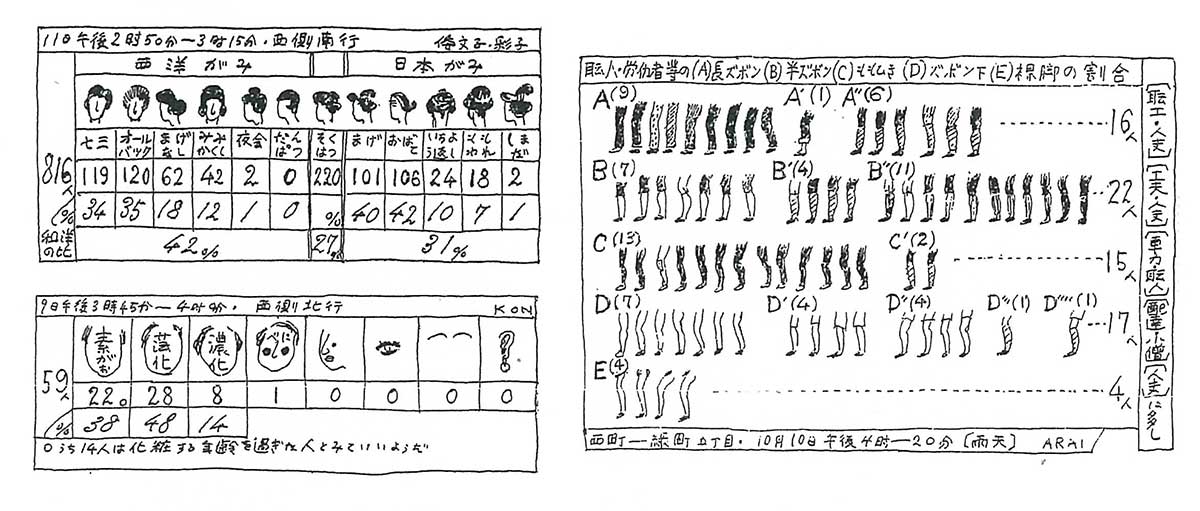 11日午後2時50分〜3時15分・西側南行
西洋がみ 日本がみ
七三 オールバック まげなし みみかくし 夜会 だんぱつ そくはつ まげ おばこ いちよう返し ももわれ しまだ
816人 119 120 62 42 2 0 220 101 106 24 18 2
% 34 35 18 12 1 0 % 40 42 10 7 1
和洋の比 42% 27% 31%
9日午後3時45分〜4時
西側北行 KON
素がお 薄化 濃化 べに ?
59人 22。 28 8 1 0 0 0 0
% 38 48 14
○うち14人は化粧する年齢を過ぎた人とみていいようだ
職人・労働者等の(A)長ズボン(B)半ズボン(C)ももひき(D)ズボン下(E)裸脚の割合
A(9) A'(1) A''(6) 16人
B(7) B'(4) B''(11) 22人
C(13) C'(2) 15人
D(7) D'(4) D''(4) D'''(1) D''''(1) 17人
E(4) 4人
西町―緑町五丁目・10月10日午後4時―20分〔雨天〕 ARAI
〔職工・人夫〕〔工夫・人夫〕〔車力職人〕〔配達小僧〕〔人夫〕に多し